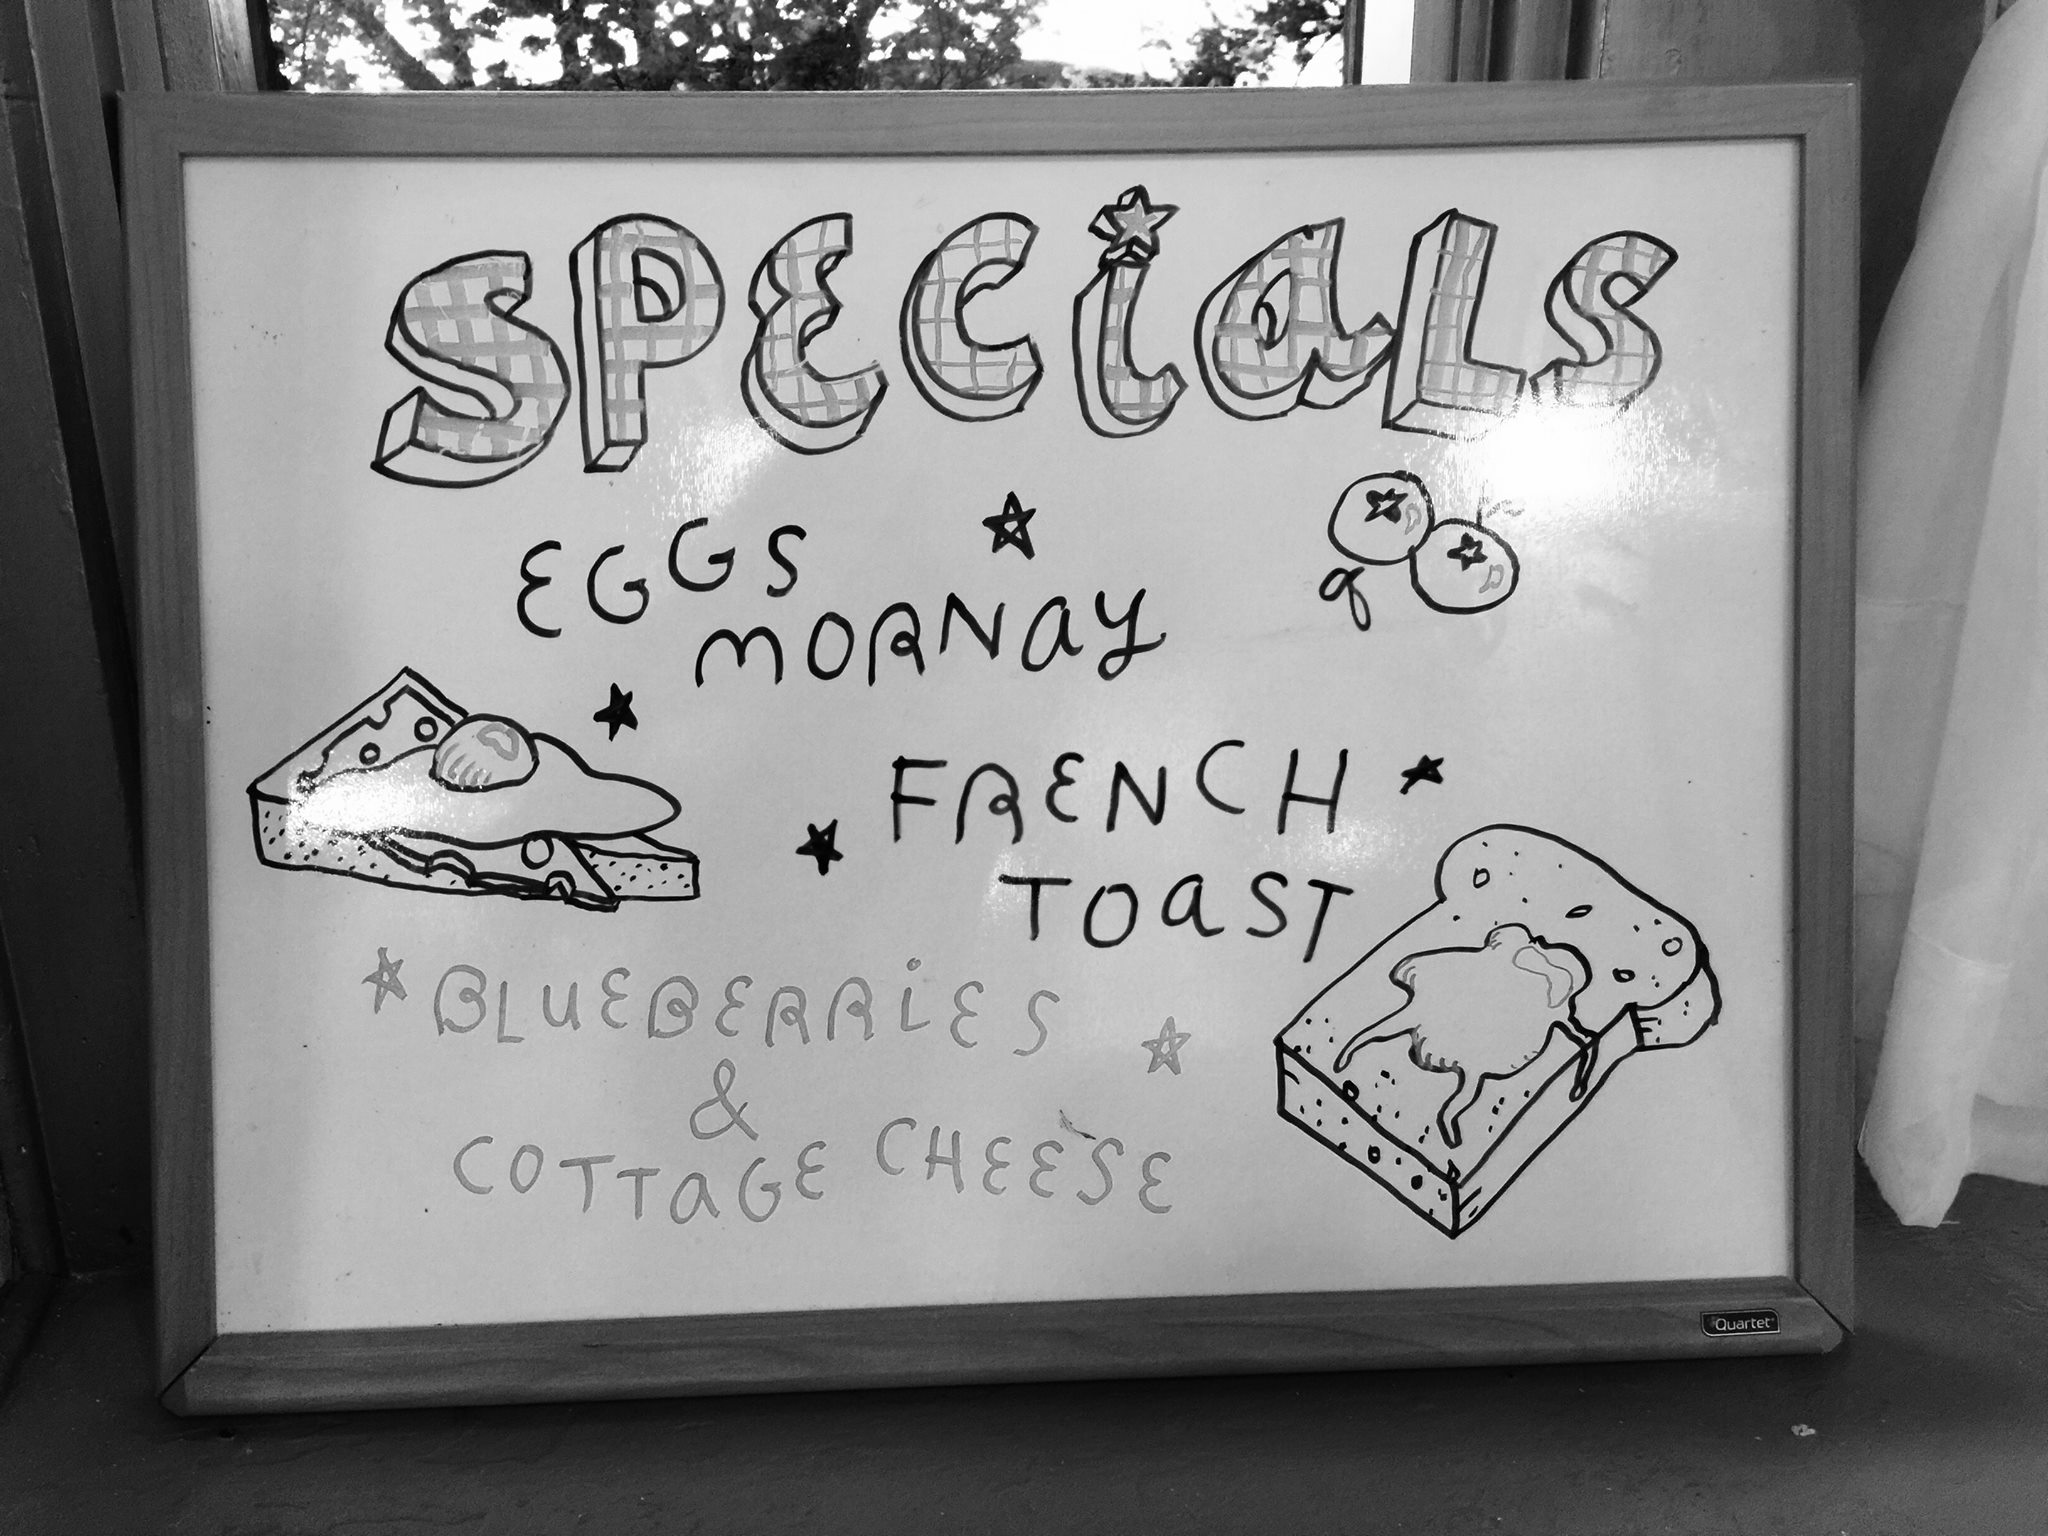 SPECiaLS
EGGS
MORNAY
FRENCH
TOaST
BLUEBERRiES
&
COTTaGE CHEESE
Quartet